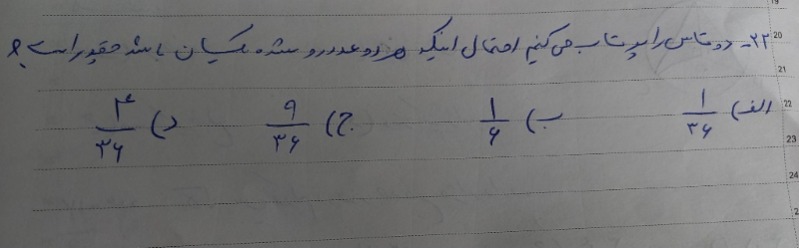 ۲۲- دو تاس را پرتاب می‌کنیم احتمال اینکه هر دو عدد رو شده یکسان باشد چقدر است؟
الف) ۱/۳۶ ب) ۱/۶ ج) ۹/۳۶ د) ۴/۳۶
20
21
22
23
24